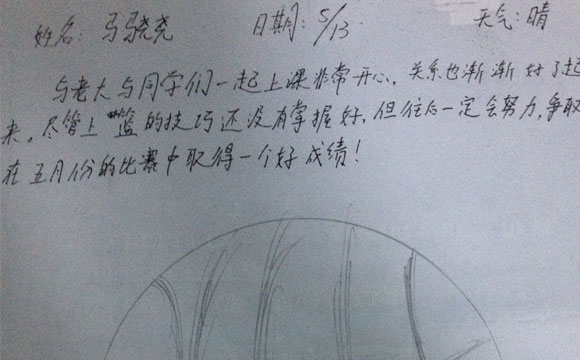 姓名：马骁尧 日期：5/13 天气：晴
与老大与同学们一起上课非常开心，关系也渐渐好了起
来。尽管上篮的技巧还没有掌握好，但往后一定会努力，争取
在五月份的比赛中取得一个好成绩！